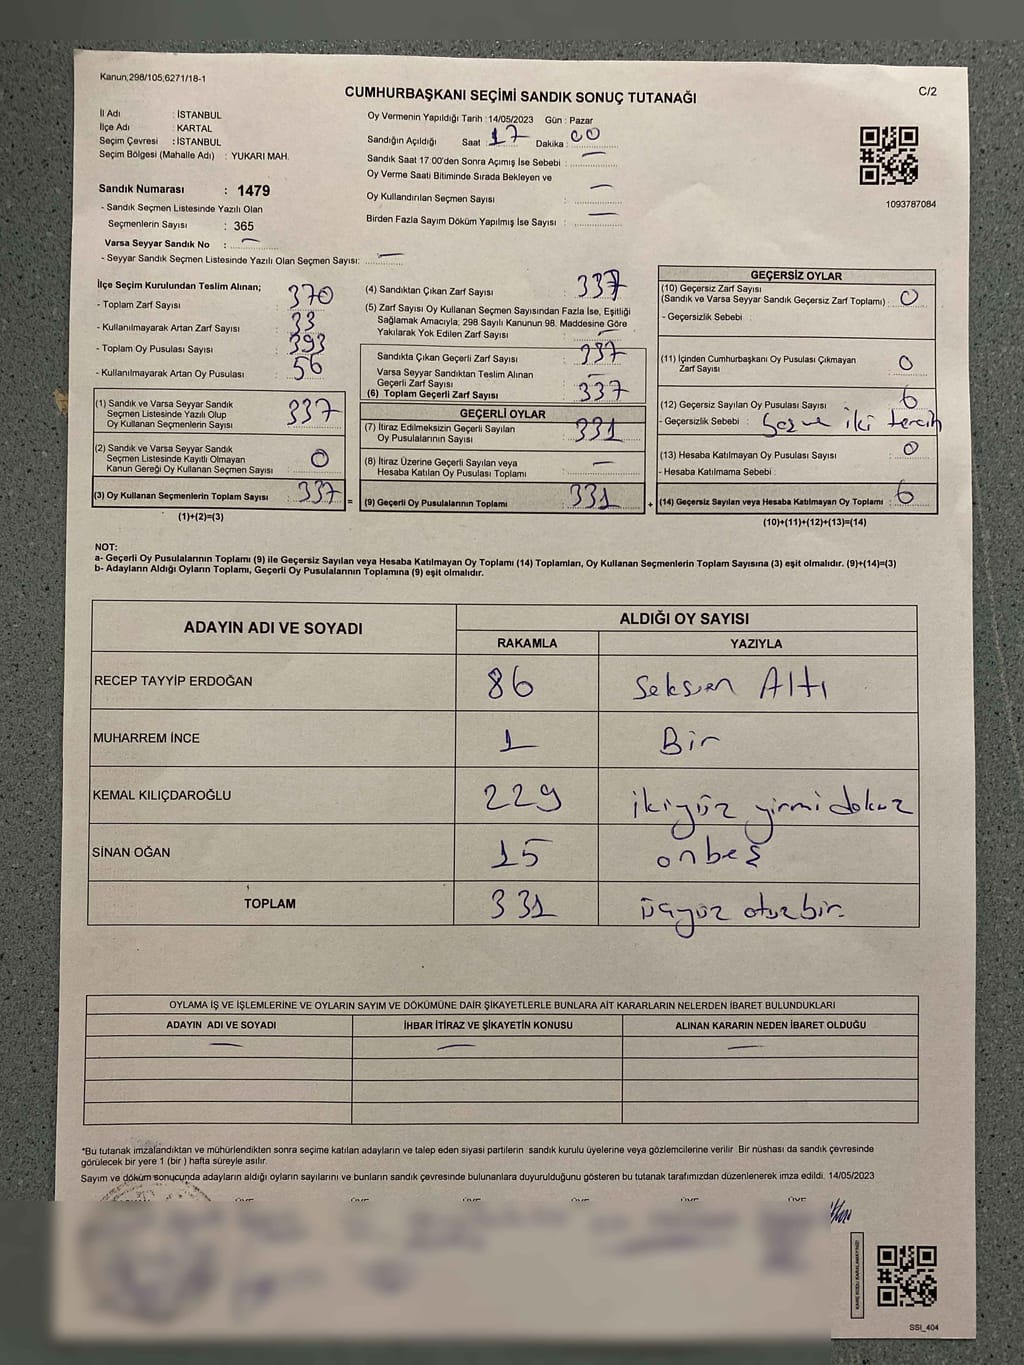 Kanun;298/105;6271/18-1
C/2
CUMHURBAŞKANI SEÇİMİ SANDIK SONUÇ TUTANAĞI
İl Adı : İSTANBUL
İlçe Adı : KARTAL
Seçim Çevresi : İSTANBUL
Seçim Bölgesi (Mahalle Adı) : YUKARI MAH.
Sandık Numarası : 1479
- Sandık Seçmen Listesinde Yazılı Olan
Seçmenlerin Sayısı : 365
Varsa Seyyar Sandık No : —
- Seyyar Sandık Seçmen Listesinde Yazılı Olan Seçmen Sayısı: —
Oy Vermenin Yapıldığı Tarih : 14/05/2023 Gün : Pazar
Sandığın Açıldığı Saat : 17 Dakika : 00
Sandık Saat 17:00'den Sonra Açımış İse Sebebi : —
Oy Verme Saati Bitiminde Sırada Bekleyen ve
Oy Kullandırılan Seçmen Sayısı : —
Birden Fazla Sayım Döküm Yapılmış İse Sayısı : —
1093787084
İlçe Seçim Kurulundan Teslim Alınan;
- Toplam Zarf Sayısı : 370
- Kullanılmayarak Artan Zarf Sayısı : 33
- Toplam Oy Pusulası Sayısı : 393
- Kullanılmayarak Artan Oy Pusulası : 56
(1) Sandık ve Varsa Seyyar Sandık
Seçmen Listesinde Yazılı Olup
Oy Kullanan Seçmenlerin Sayısı : 337
(2) Sandık ve Varsa Seyyar Sandık
Seçmen Listesinde Kayıtlı Olmayan
Kanun Gereği Oy Kullanan Seçmen Sayısı : 0
(3) Oy Kullanan Seçmenlerin Toplam Sayısı : 337
(1)+(2)=(3)
=
(4) Sandıktan Çıkan Zarf Sayısı : 337
(5) Zarf Sayısı Oy Kullanan Seçmen Sayısından Fazla İse, Eşitliği
Sağlamak Amacıyla; 298 Sayılı Kanunun 98. Maddesine Göre
Yakılarak Yok Edilen Zarf Sayısı : —
Sandıkta Çıkan Geçerli Zarf Sayısı : 337
Varsa Seyyar Sandıktan Teslim Alınan
Geçerli Zarf Sayısı : —
(6) Toplam Geçerli Zarf Sayısı : 337
GEÇERLİ OYLAR
(7) İtiraz Edilmeksizin Geçerli Sayılan
Oy Pusulalarının Sayısı : 331
(8) İtiraz Üzerine Geçerli Sayılan veya
Hesaba Katılan Oy Pusulası Toplamı : —
(9) Geçerli Oy Pusulalarının Toplamı : 331
+
GEÇERSİZ OYLAR
(10) Geçersiz Zarf Sayısı
(Sandık ve Varsa Seyyar Sandık Geçersiz Zarf Toplamı) : 0
- Geçersizlik Sebebi :
(11) İçinden Cumhurbaşkanı Oy Pusulası Çıkmayan
Zarf Sayısı : 0
(12) Geçersiz Sayılan Oy Pusulası Sayısı : 6
- Geçersizlik Sebebi : iki tercih
(13) Hesaba Katılmayan Oy Pusulası Sayısı : 0
- Hesaba Katılmama Sebebi :
(14) Geçersiz Sayılan veya Hesaba Katılmayan Oy Toplamı : 6
(10)+(11)+(12)+(13)=(14)
NOT:
a- Geçerli Oy Pusulalarının Toplamı (9) ile Geçersiz Sayılan veya Hesaba Katılmayan Oy Toplamı (14) Toplamları, Oy Kullanan Seçmenlerin Toplam Sayısına (3) eşit olmalıdır. (9)+(14)=(3)
b- Adayların Aldığı Oyların Toplamı, Geçerli Oy Pusulalarının Toplamına (9) eşit olmalıdır.
ADAYIN ADI VE SOYADI ALDIĞI OY SAYISI
RAKAMLA YAZIYLA
RECEP TAYYİP ERDOĞAN 86 Seksen Altı
MUHARREM İNCE 1 Bir
KEMAL KILIÇDAROĞLU 229 ikiyüz yirmi dokuz
SİNAN OĞAN 15 onbeş
TOPLAM 331 üçyüz otuzbir.
OYLAMA İŞ VE İŞLEMLERİNE VE OYLARIN SAYIM VE DÖKÜMÜNE DAİR ŞİKAYETLERLE BUNLARA AİT KARARLARIN NELERDEN İBARET BULUNDUKLARI
ADAYIN ADI VE SOYADI İHBAR İTİRAZ VE ŞİKAYETİN KONUSU ALINAN KARARIN NEDEN İBARET OLDUĞU
— — —
*Bu tutanak imzalandıktan ve mühürlendikten sonra seçime katılan adayların ve talep eden siyasi partilerin sandık kurulu üyelerine veya gözlemcilerine verilir. Bir nüshası da sandık çevresinde
görülecek bir yere 1 (bir ) hafta süreyle asılır.
Sayım ve döküm sonucunda adayların aldığı oyların sayılarını ve bunların sandık çevresinde bulunanlara duyurulduğunu gösteren bu tutanak tarafımızdan düzenlenerek imza edildi. 14/05/2023
SSI_404